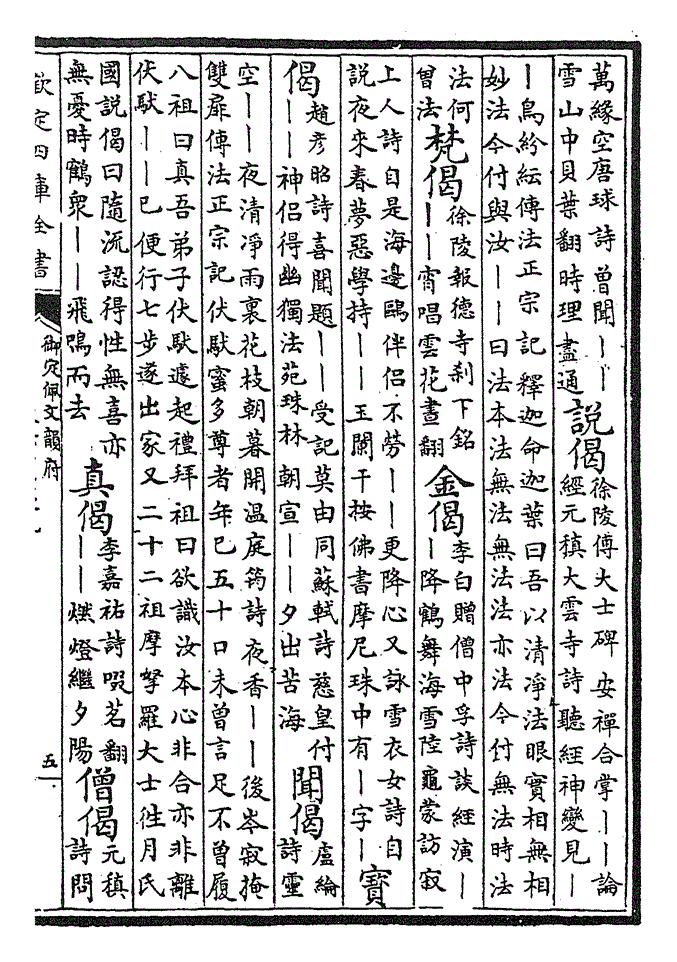 萬緣空唐球詩曽聞丨丨
雪山中貝葉翻時理盡通
説偈
徐陵傅大士碑安禪合掌丨丨論
經元稹大雲寺詩聽經神變見丨
丨鳥紛紜傳法正宗記釋迦命迦葉曰吾以清凈法眼實相無相
妙法今付與汝丨丨曰法本法無法無法法亦法今付無法時法
法何
曽法
梵偈
徐陵報德寺刹下銘
丨丨宵唱雲花晝翻
金偈
李白贈僧中孚詩談經演丨
丨降鶴舞海雪陸龜蒙訪寂
上人詩自是海邊鷗伴侣不勞丨丨更降心又詠雪衣女詩自
説夜來春夢惡學持丨丨玉闌干按佛書摩尼珠中有丨字丨
寶
偈
趙彦昭詩喜聞題丨丨受記莫由同蘇軾詩慈皇付
丨丨神侣得幽獨法苑珠林朝宣丨丨夕出苦海
聞偈
盧綸
詩靈
空丨丨夜清凈雨裏花枝朝暮開温庭筠詩夜香丨丨後岑寂掩
雙扉傳法正宗記伏馱蜜多尊者年已五十口未曽言足不曽履
八祖曰真吾弟子伏馱遽起禮拜祖曰欲識汝本心非合亦非離
伏馱丨丨已便行七步遂出家又二十二祖摩拏羅大士徃月氏
國説偈曰隨流認得性無喜亦
無憂時鶴衆丨丨飛鳴而去
真偈
李嘉祐詩啜茗翻
丨丨燃燈繼夕陽
僧偈
元稹
詩問
欽定四庫全書
御定佩文韻府
五